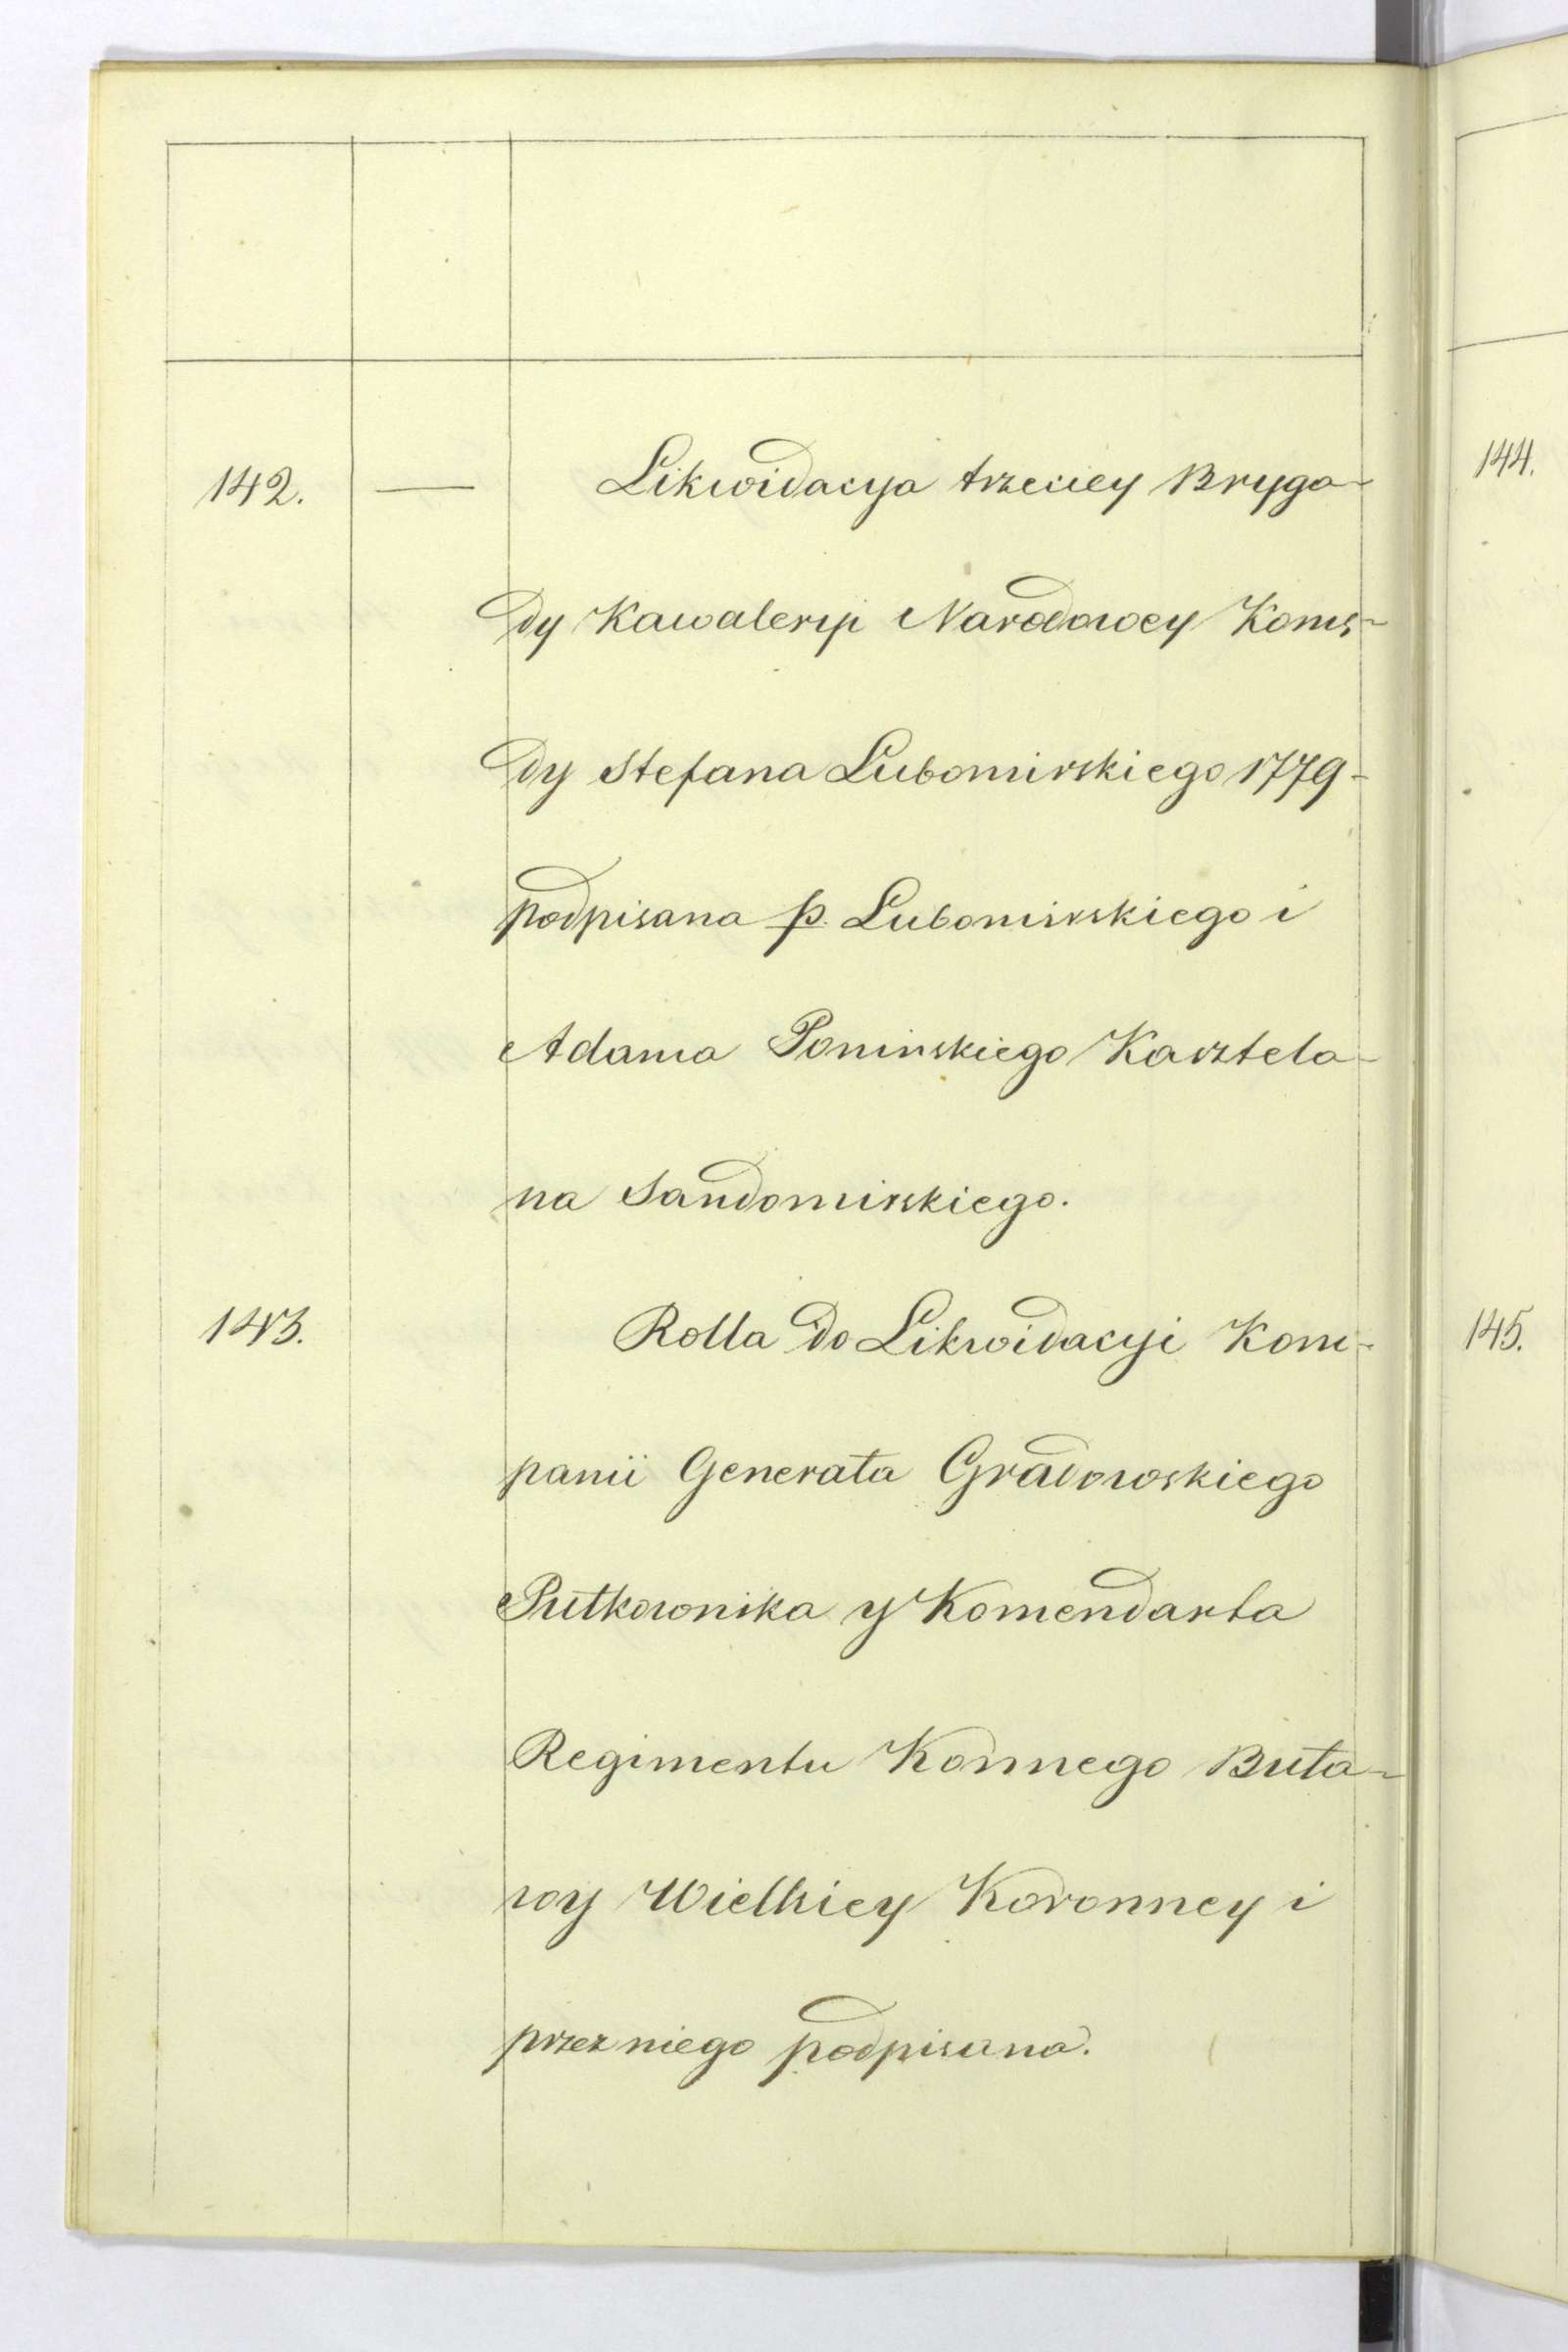 142. — Likwidacya trzeciey Bryga-
dy Kawaleryi Narodowey Kom-
dy Stefana Lubomirskiego 1779-
podpisana p. Lubomirskiego i
Adama Poninskiego Kasztela-
na Sandomirskiego.
143. Rolla do Likwidacyi Kom-
panii Generała Gradowskiego
Pułkownika y Komendanta
Regimentu Konnego Buła-
wy Wielkiey Koronney i
przez niego podpisana.
144.
145.